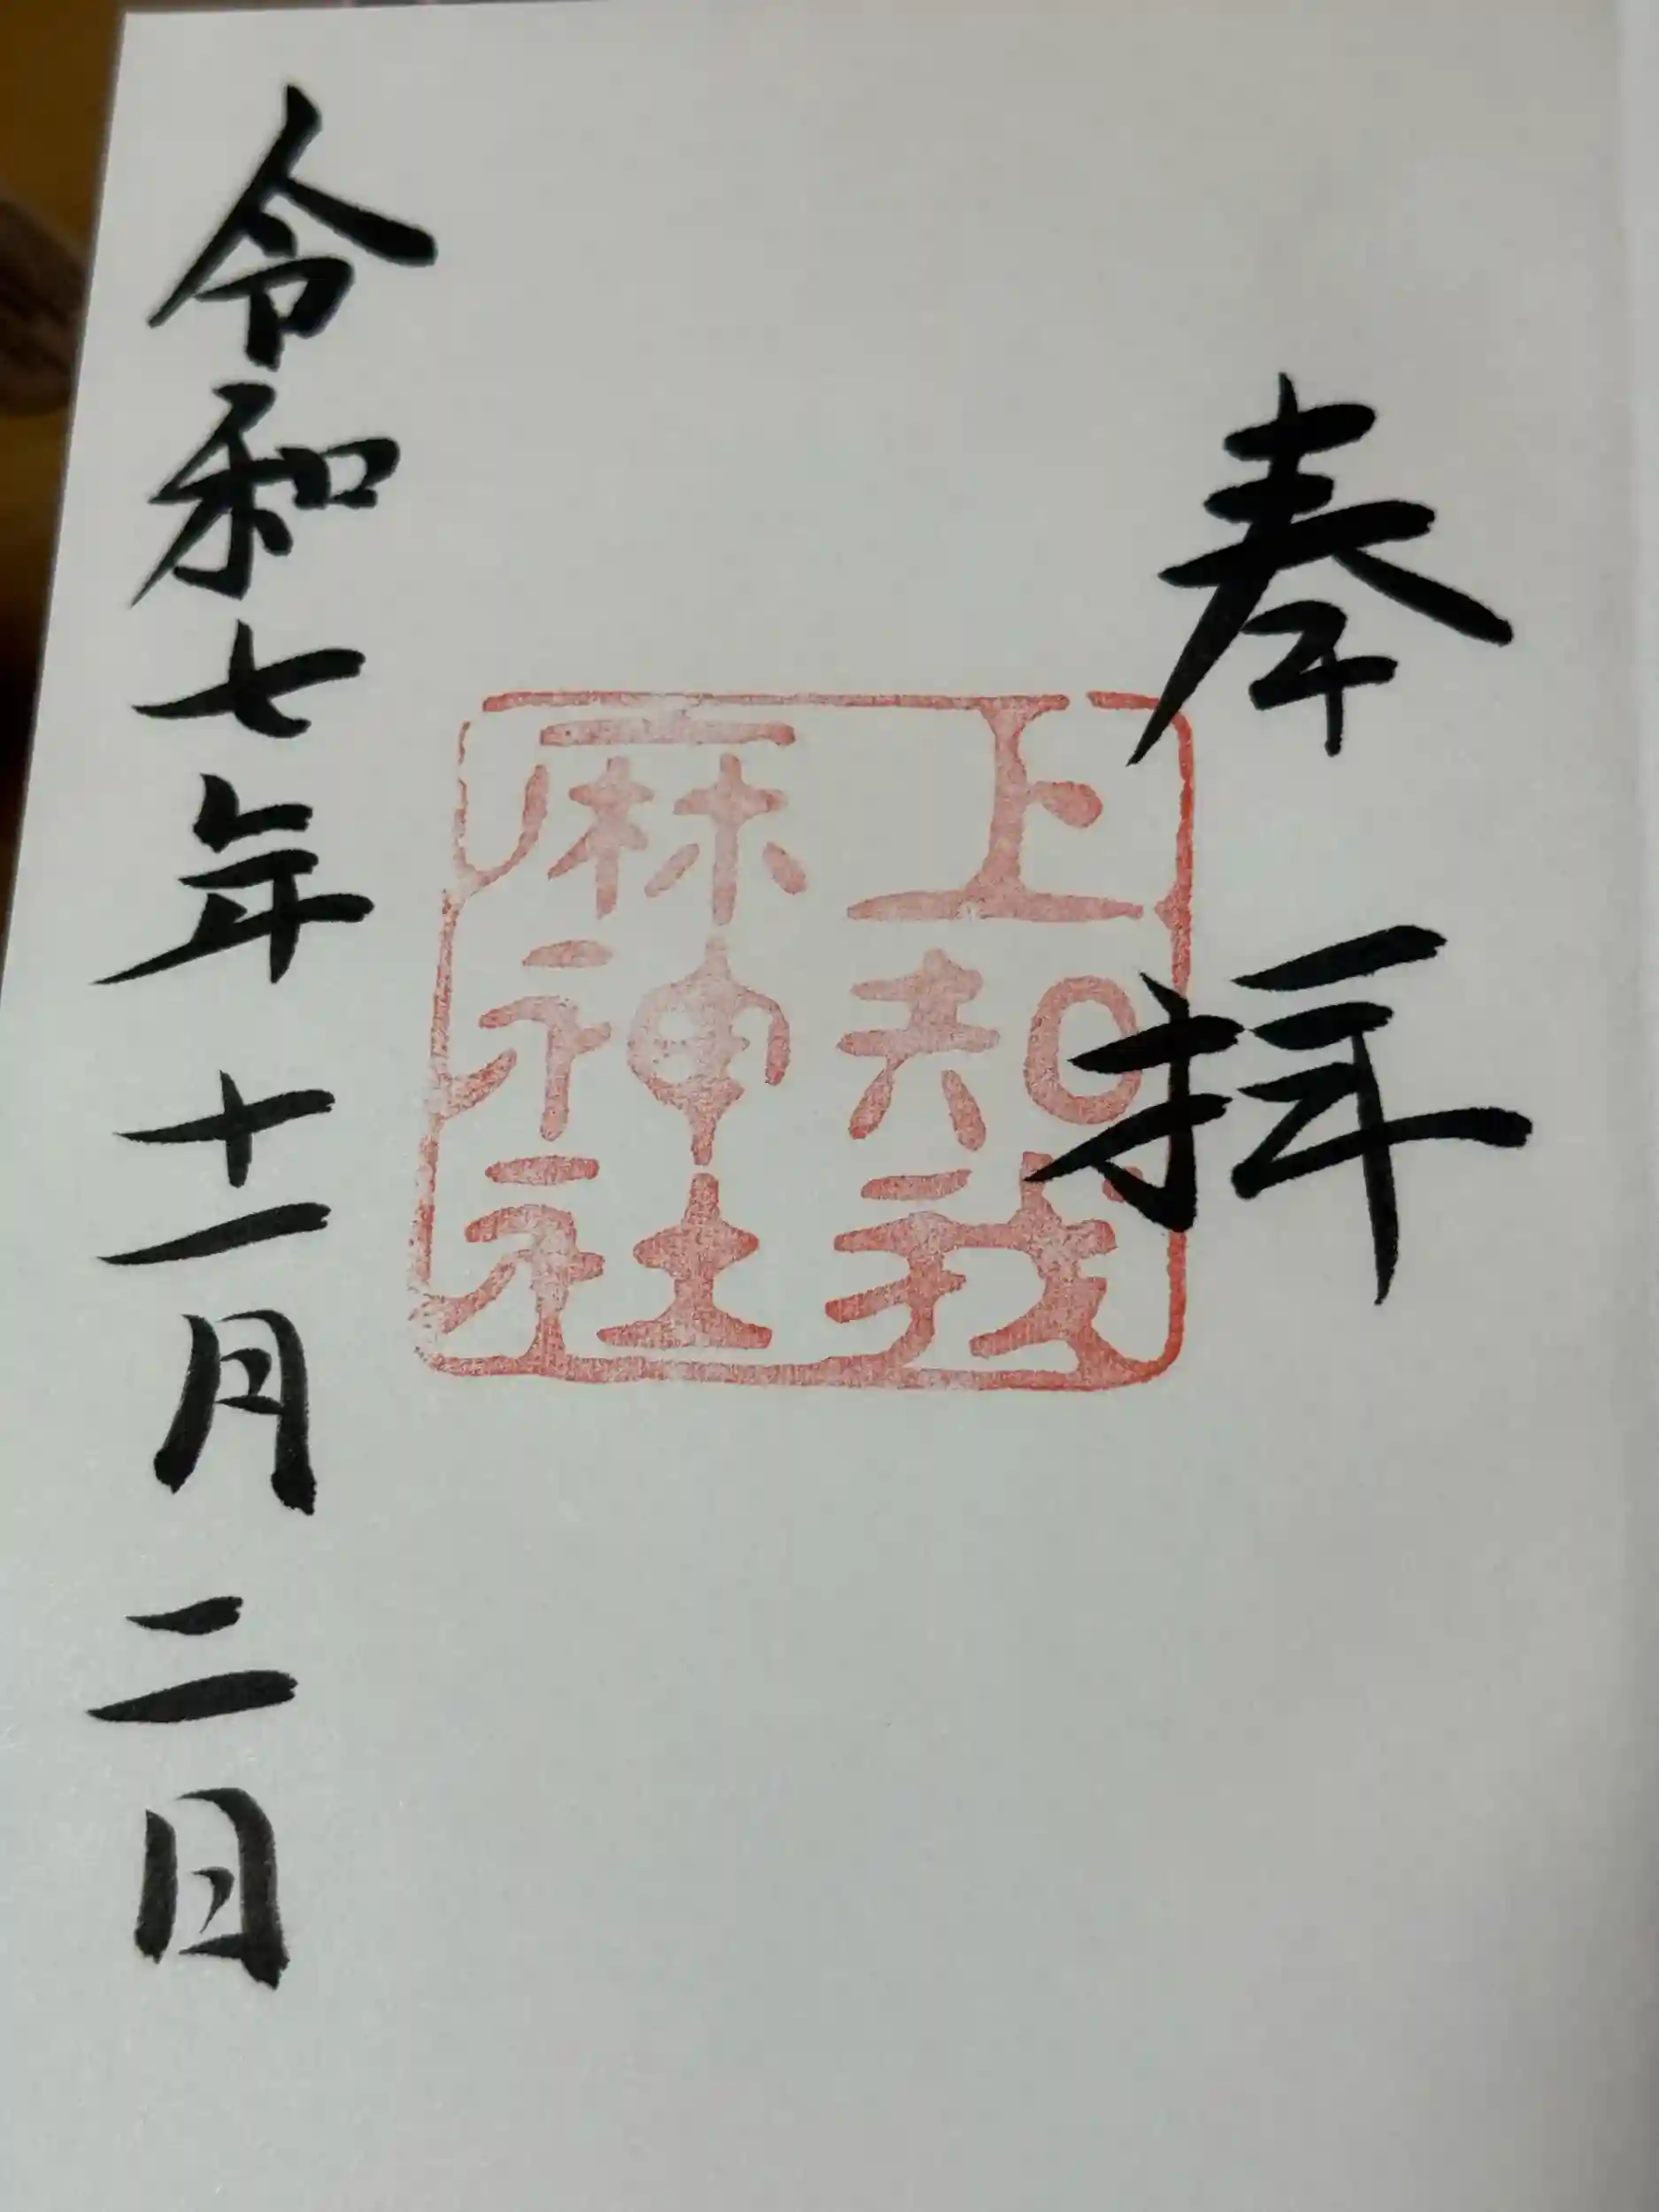 奉拝
上知我
麻神社
令和七年十一月二日